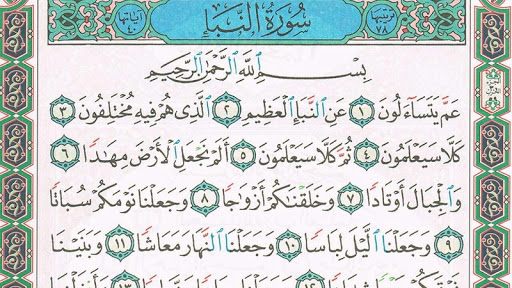 ترتيبها ٧٨ سُورَةُ النَّبَإِ آياتها ٤٠
بِسْمِ ٱللَّهِ ٱلرَّحْمَٰنِ ٱلرَّحِيمِ
عَمَّ يَتَسَآءَلُونَ ١ عَنِ ٱلنَّبَإِ ٱلْعَظِيمِ ٢ ٱلَّذِى هُمْ فِيهِ مُخْتَلِفُونَ ٣
كَلَّا سَيَعْلَمُونَ ٤ ثُمَّ كَلَّا سَيَعْلَمُونَ ٥ أَلَمْ نَجْعَلِ ٱلْأَرْضَ مِهَٰدًا ٦
وَٱلْجِبَالَ أَوْتَادًا ٧ وَخَلَقْنَٰكُمْ أَزْوَٰجًا ٨ وَجَعَلْنَا نَوْمَكُمْ سُبَاتًا
٩ وَجَعَلْنَا ٱلَّيْلَ لِبَاسًا ١٠ وَجَعَلْنَا ٱلنَّهَارَ مَعَاشًا ١١ وَبَنَيْنَا